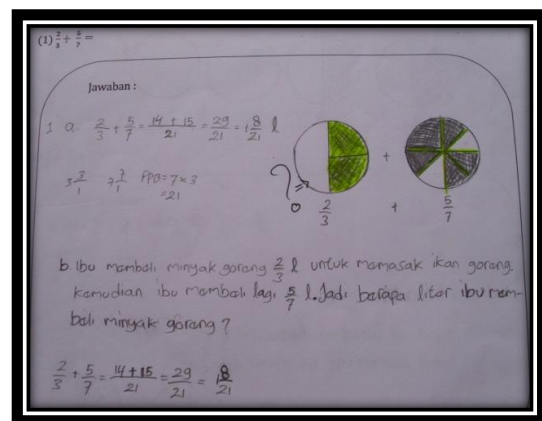 (1) 2/3 + 5/7 =
Jawaban :
1 a. 2/3 + 5/7 = 14 + 15/21 = 29/21 = 1 8/21 l
3 3/1 7 7/1 PPB = 7 x 3
= 21
? 0 2/3 + 5/7
+
b. Ibu membeli minyak goreng 2/3 l untuk memasak ikan goreng.
Kemudian ibu membeli lagi 5/7 l. Jadi berapa liter ibu mem-
beli minyak goreng ?
2/3 + 5/7 = 14 + 15/21 = 29/21 = 1 8/21